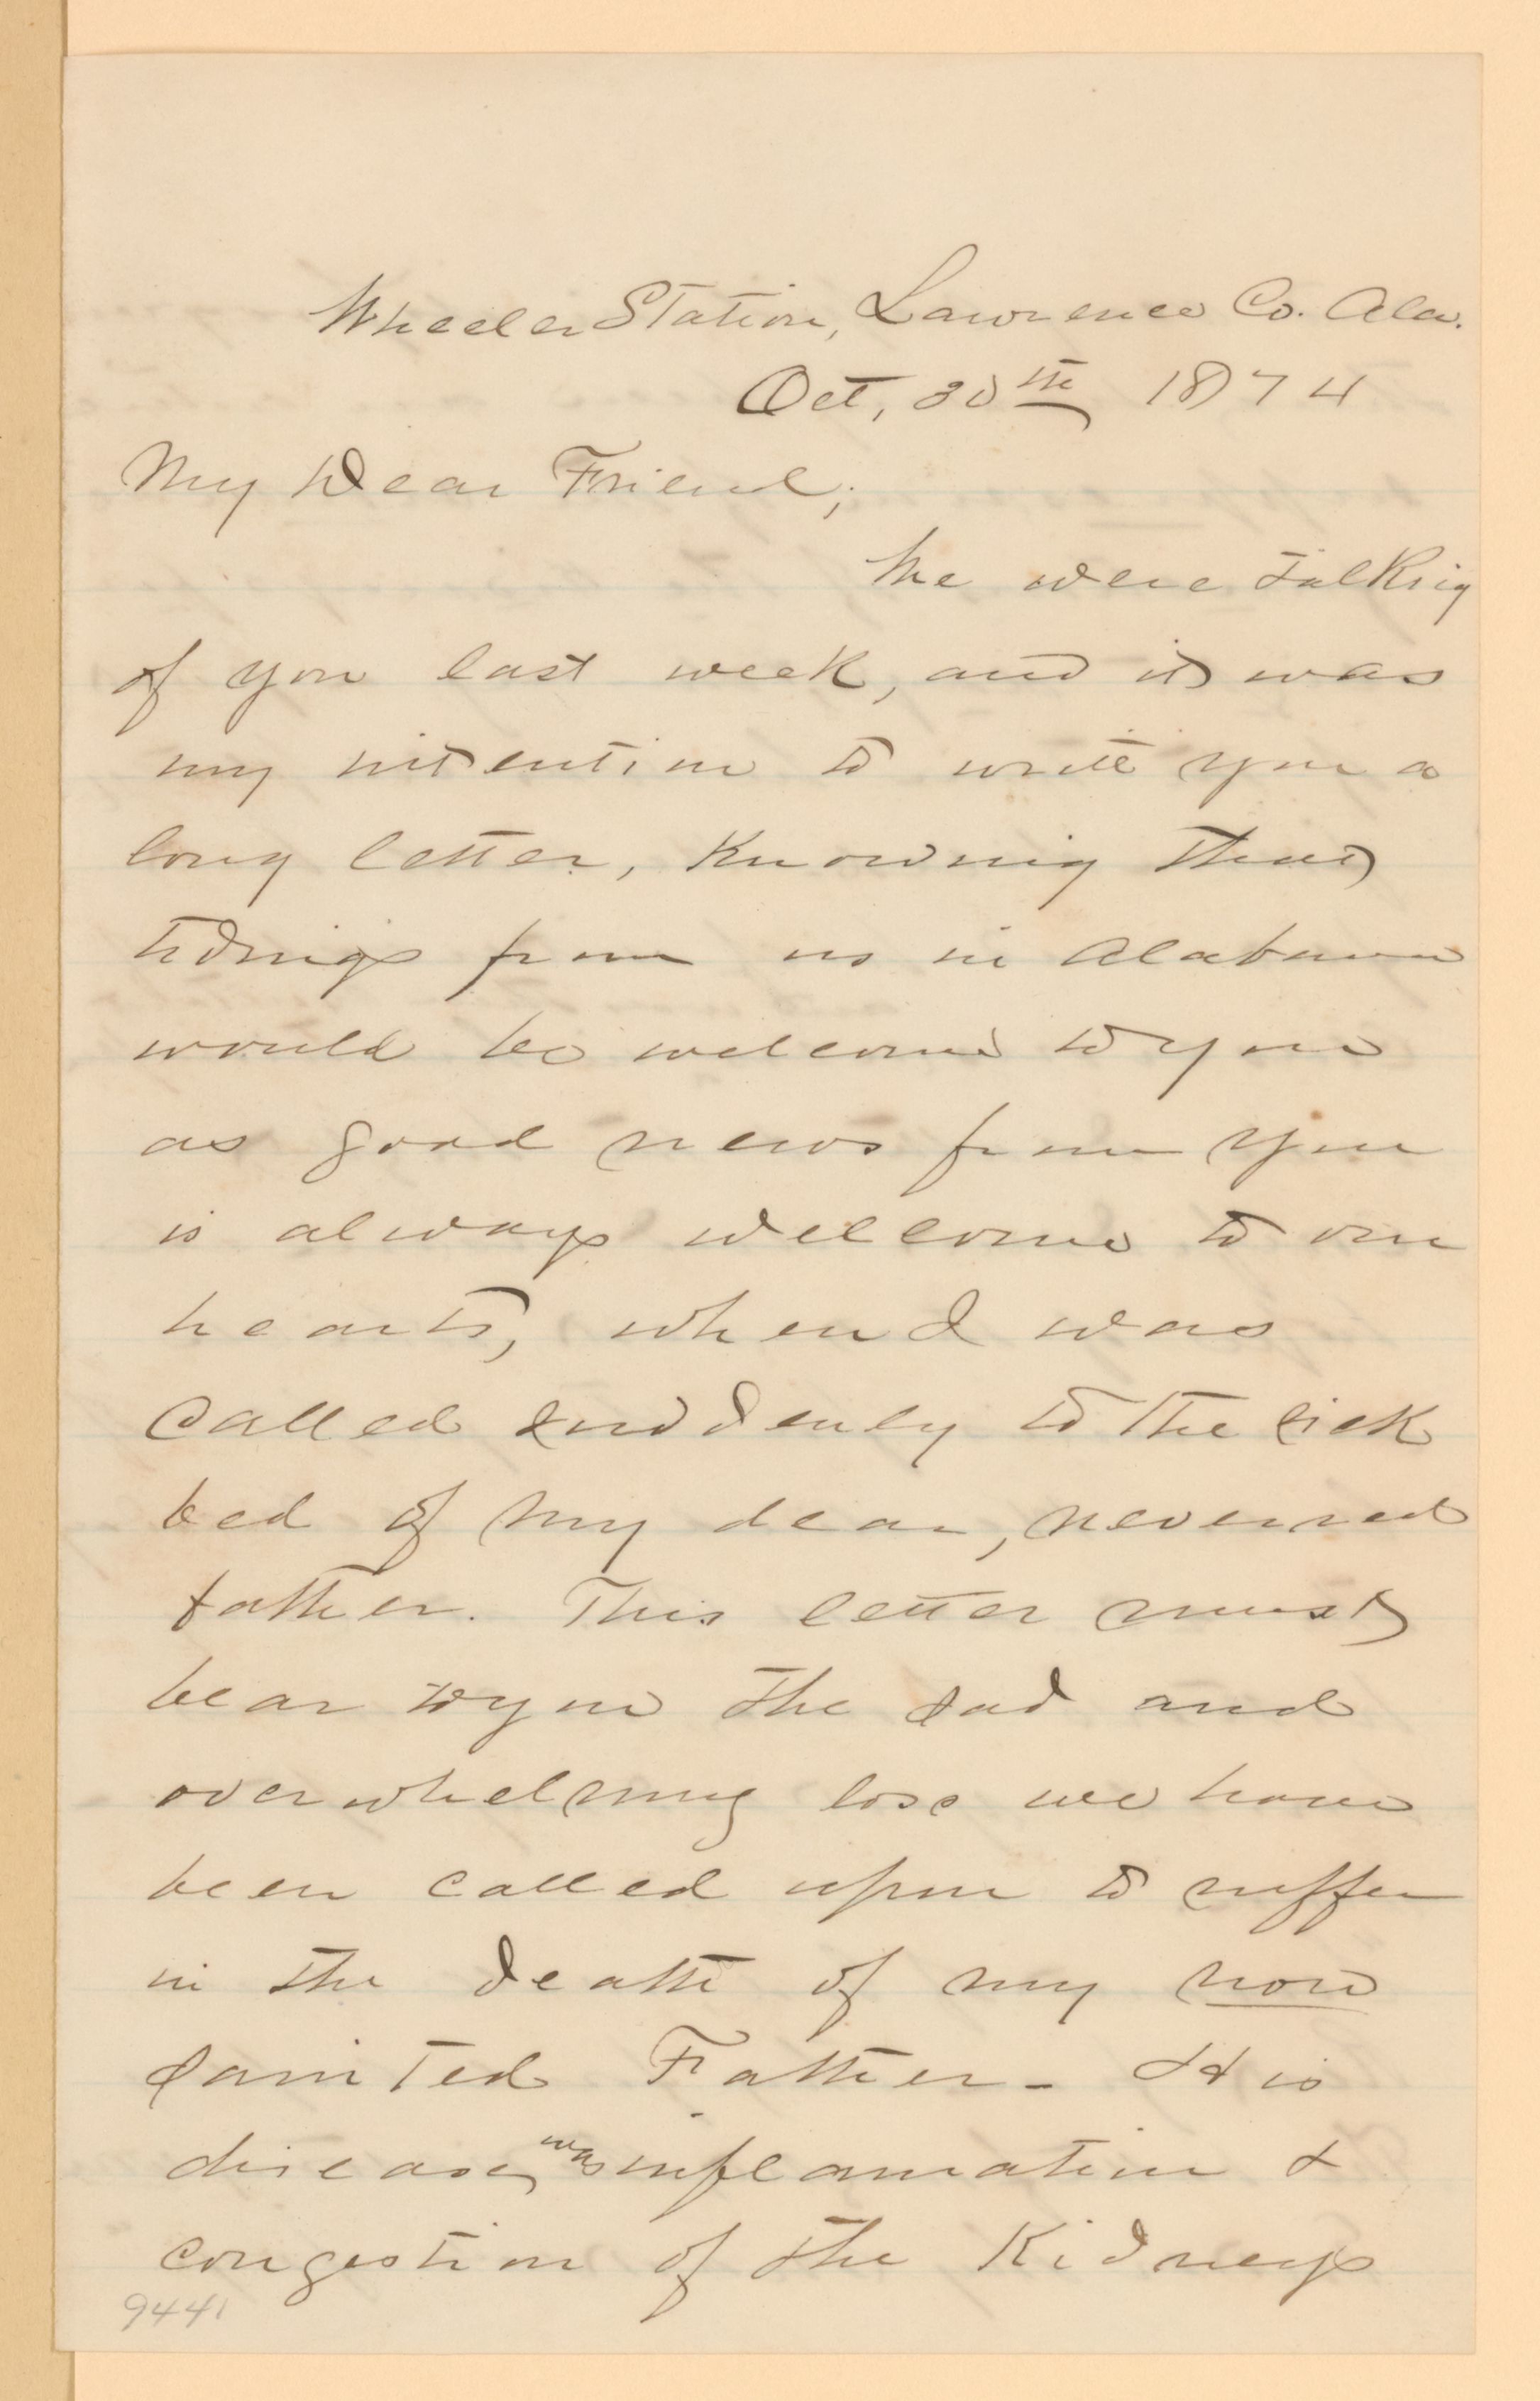 Wheeler Station, Lawrence Co. Ala.
Oct, 30th 1874
My Dear Friend;
We were talking
of you last week, and it was
my intention to write you a
long letter, knowing that
tidings from us in Alabama
would be welcome to you
as good news from you
is always welcome to our
hearts, when I was
called suddenly to the sick
bed of my dear, revered
father. This letter must
bear to you the sad and
overwhelming loss we have
been called upon to suffer
in the death of my now
sainted Father - His
disease, was inflamation &
congestion of the Kidneys
9441